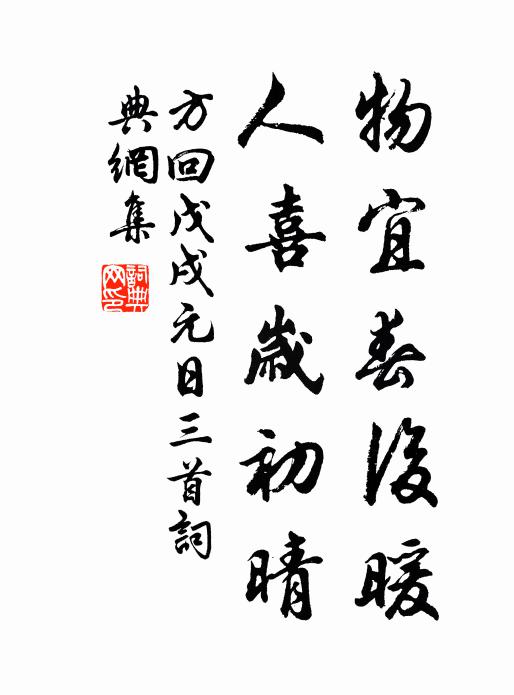 物宜春後暖
人喜歲初晴
方回戊戌元日三首詞
典網集
詞典
网印